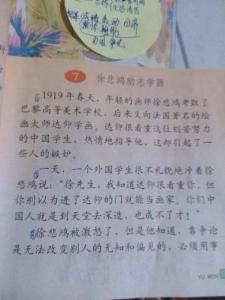 7 徐悲鸿励志学画
1919年春天,年轻的画师徐悲鸿考取了
巴黎高等美术学校,后来又向法国著名的绘
画大师达仰学画。达仰很看重这位刻苦努力
的中国学生,热情地指导他,这却引起了一
些人的嫉妒。
一天,一个外国学生很不礼貌地冲着徐
悲鸿说:“徐先生,我知道达仰很看重你,但
你别以为进了达仰的门就能当画家。你们中
国人就是到天堂去深造,也成不了才!”
徐悲鸿被激怒了,但是他知道,靠争论
是无法改变别人的无知和偏见的,必须用事
YU WEN